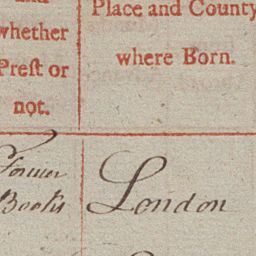 and
whether
Prest or
not.
Place and County
where Born.
Former
Books
London